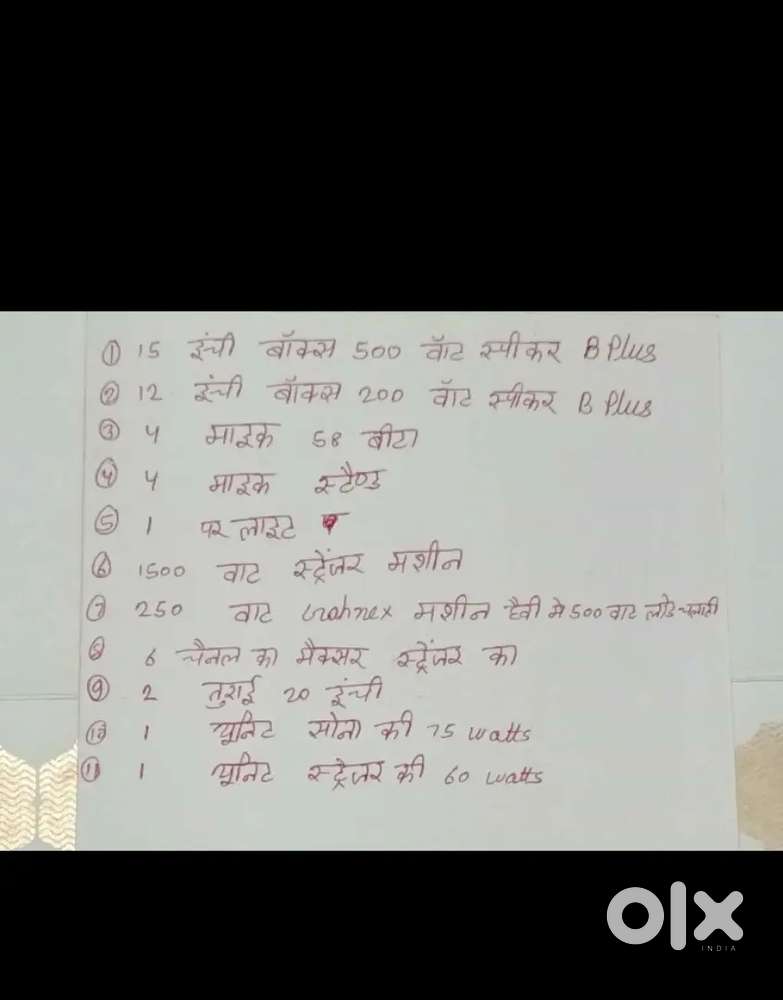 ① 15 इंची बॉक्स 500 वॅाट स्पीकर B Plus
② 12 इंची बॉक्स 200 वॅाट स्पीकर B Plus
③ 4 माइक 58 बीटा
④ 4 माइक स्टैण्ड
⑤ 1 पर लाइट
⑥ 1500 वाट स्ट्रेंजर मशीन
⑦ 250 वाट मशीन हैवी मे 500 वाट लोड चलाती
⑧ 6 चैनल का मैक्सर स्ट्रेंजर का
⑨ 2 तुराई 20 इंची
⑩ 1 यूनिट सोना की 75 watts
⑪ 1 यूनिट स्ट्रेजर की 60 watts
olx
INDIA